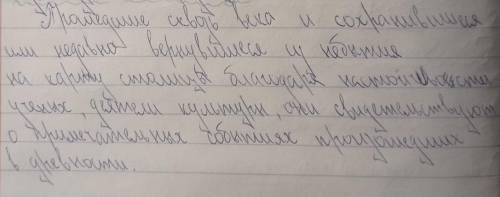 Прошедшие сквозь века и сохранившиеся
или недавно вернувшиеся из небытия
на карту столицы благодаря настойчивости
ученых, деятели культуры, они свидетельствуют
о примечательных событиях произошедших
в древности.